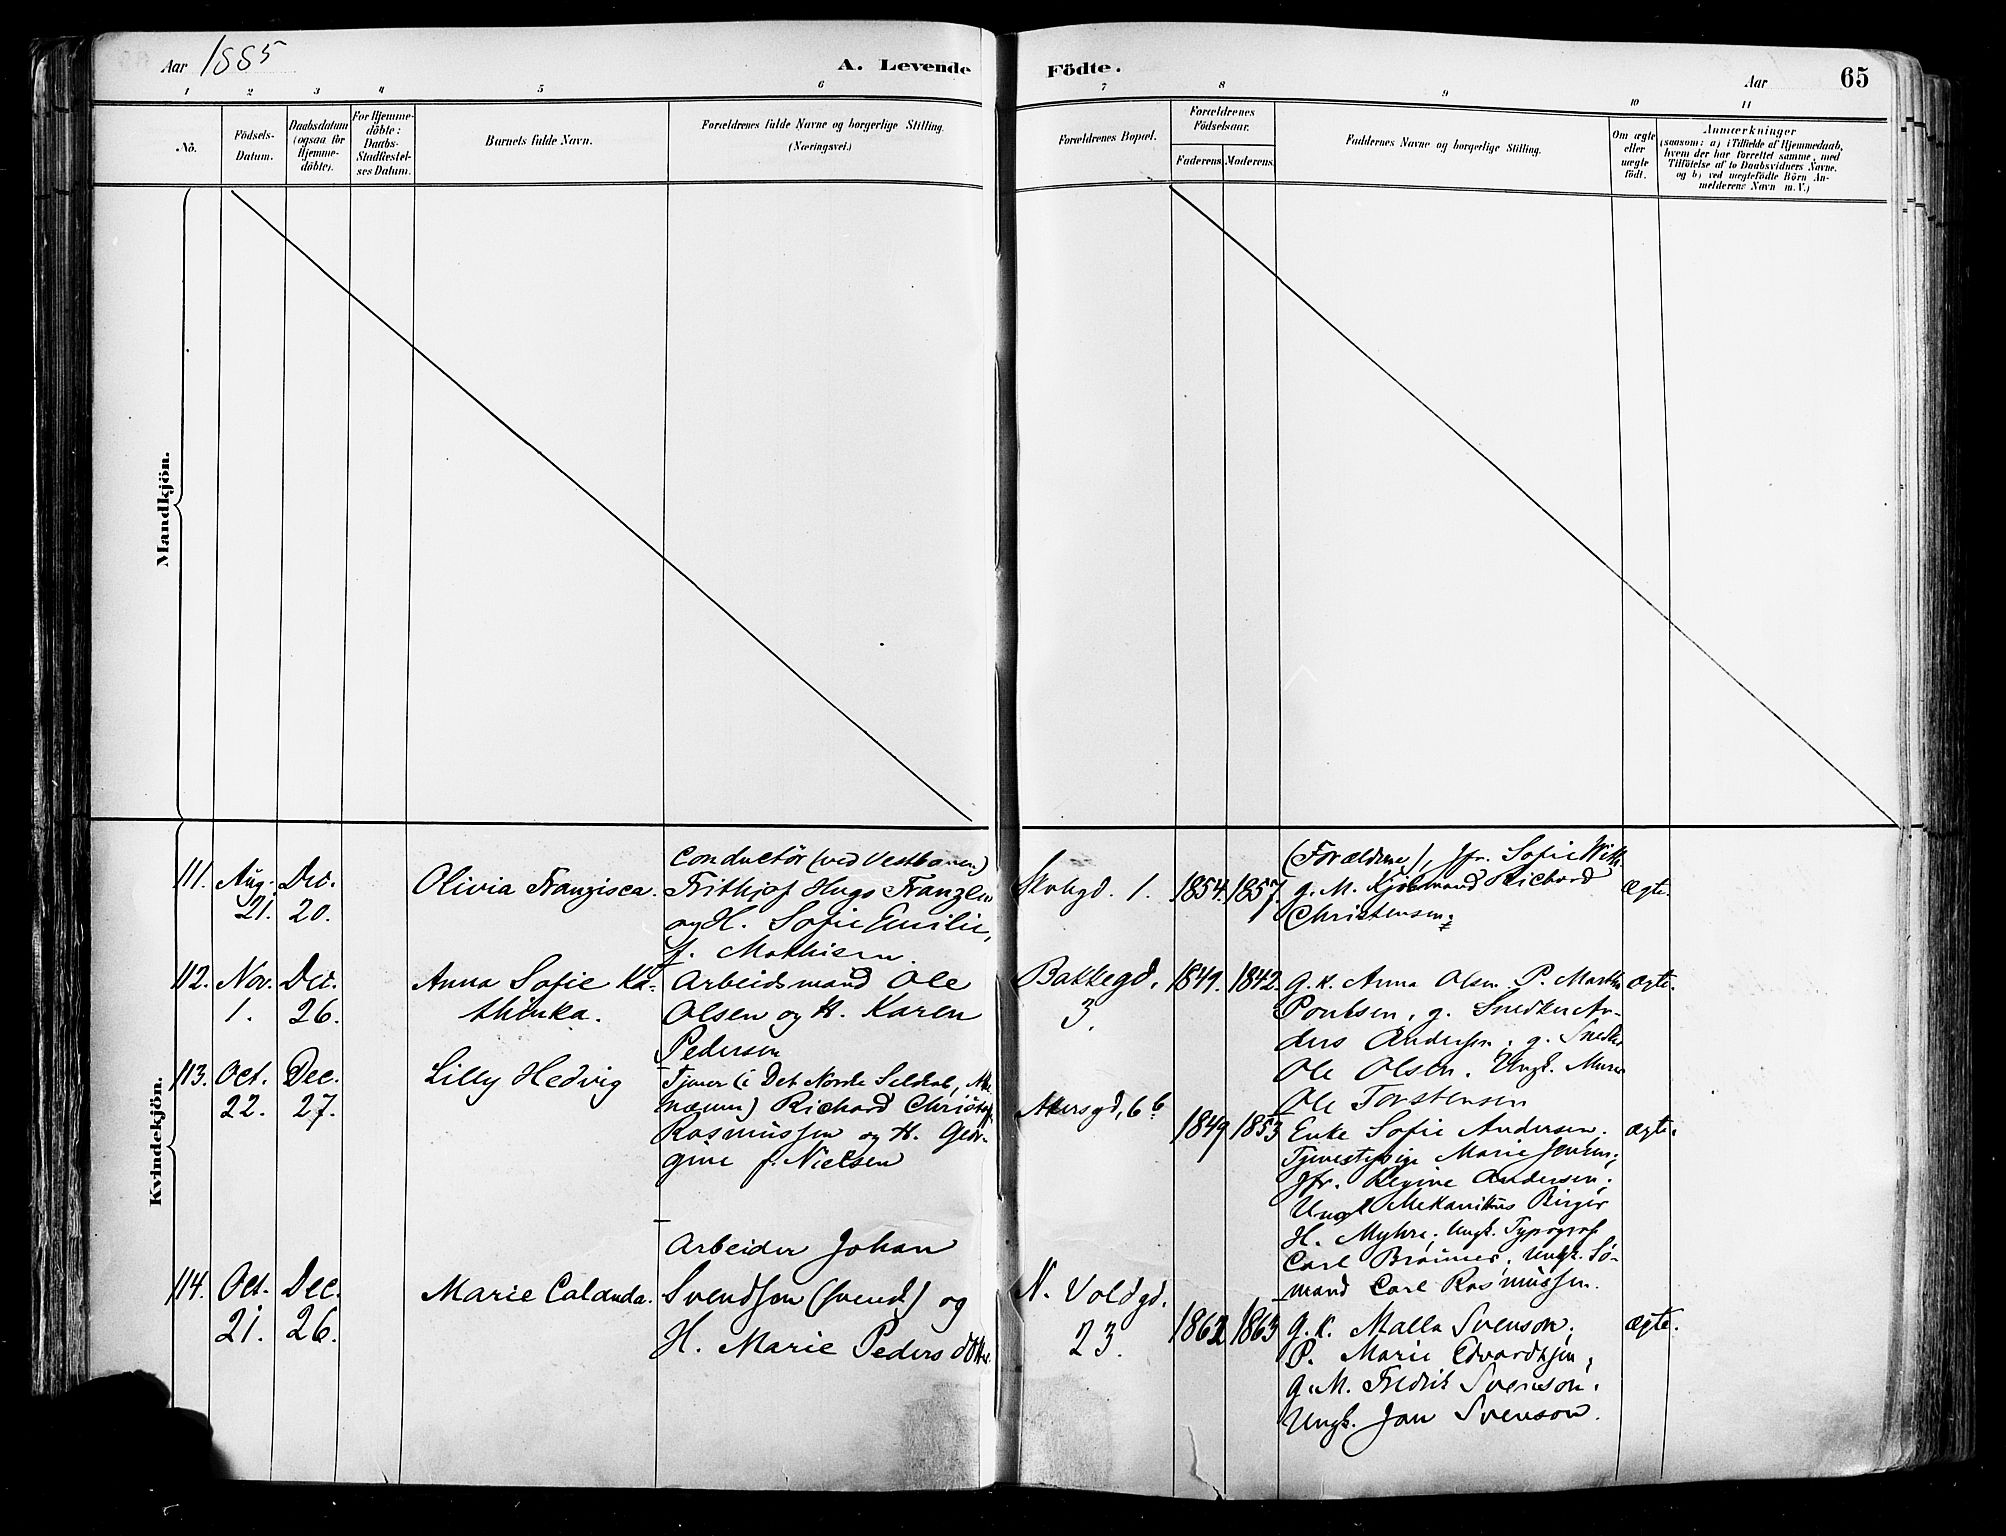 Aar 1885
A. Levende Födte.
Aar
65
1 2 3 4 5 6 7 8 9 10 11
No.
Födsels-
Datum.
Daabsdatum
(ogsaa for
Hjemme-
döbte).
For Hjemme-
döbte:
Daabs-
Stadfæstel-
ses Datum.
Barnets fulde Navn.
Forældrenes fulde Navne og borgerlige Stilling.
(Næringsvei.)
Forældrenes Bopæl.
Forældrenes
Födselsaar.
Faderens. Moderens.
Faddernes Navne og borgerlige Stilling.
Om ægte
eller
uægte
födt.
Anmærkninger
(saasom: a) i Tilfælde af Hjemmedaab,
hvem der har forrettet samme, med
Tilföielse af to Daabsvidners Navne.
og b) ved uægtefödte Börn An-
melderens Navn m. V.)
Mandkjön.
Kvindekjön.
111.
Aug.
21.
Dec.
20.
Olivia Franzisca.
Conductör (ved Vestbanen)
Frithjof Hugo Franzen
og H. Sofie Emilie,
f. Mathisen.
1.
1854.
1857.
(Forældrene), Jfr. Sofie With
g. M. Kjöbmand Richard
Christensen.
ægte.
112.
Nov.
1.
Dec.
26.
Anna Sofie Ka-
thinka.
Arbeidsmand Ole
Olsen og H. Karen
Pedersen
Bakkegd.
3.
1849.
1842.
g. K. Anna Olsen. P. Marthe
Poulsen, g. Snedker An-
ders Andersen, g. Snedker
Ole Olsen. Ungk. Murer
Ole Torstensen
ægte.
113.
Oct.
22.
Dec.
27.
Lilly Hedvig
Tjener (i Det Norske Selskab, Athe-
næum) Richard Christoff
Rasmussen og H. Geor-
gine f. Nielsen
Akersgd. 6 b.
1849
1853
Enke Sofie Andersen.
Tjenestepige Marie Jensen;
Jfr. Regine Andersen;
Ungk. Mekanikus Birger
H. Myhre; Ungk. Typograf
Carl Brönner; Ungk. Sö-
mand Carl Rasmussen.
ægte.
114.
Oct.
21.
Dec.
26.
Marie Calanda.
Arbeider Johan
Svendsen (svensk) og
H. Marie Pedersdotter.
N. Voldgd.
23.
1862
1863
g. K. Malla Svenson;
P. Marie Edvardsen;
g. M. Fredrik Svenson.
Ungk. Jan Svenson.
ægte.